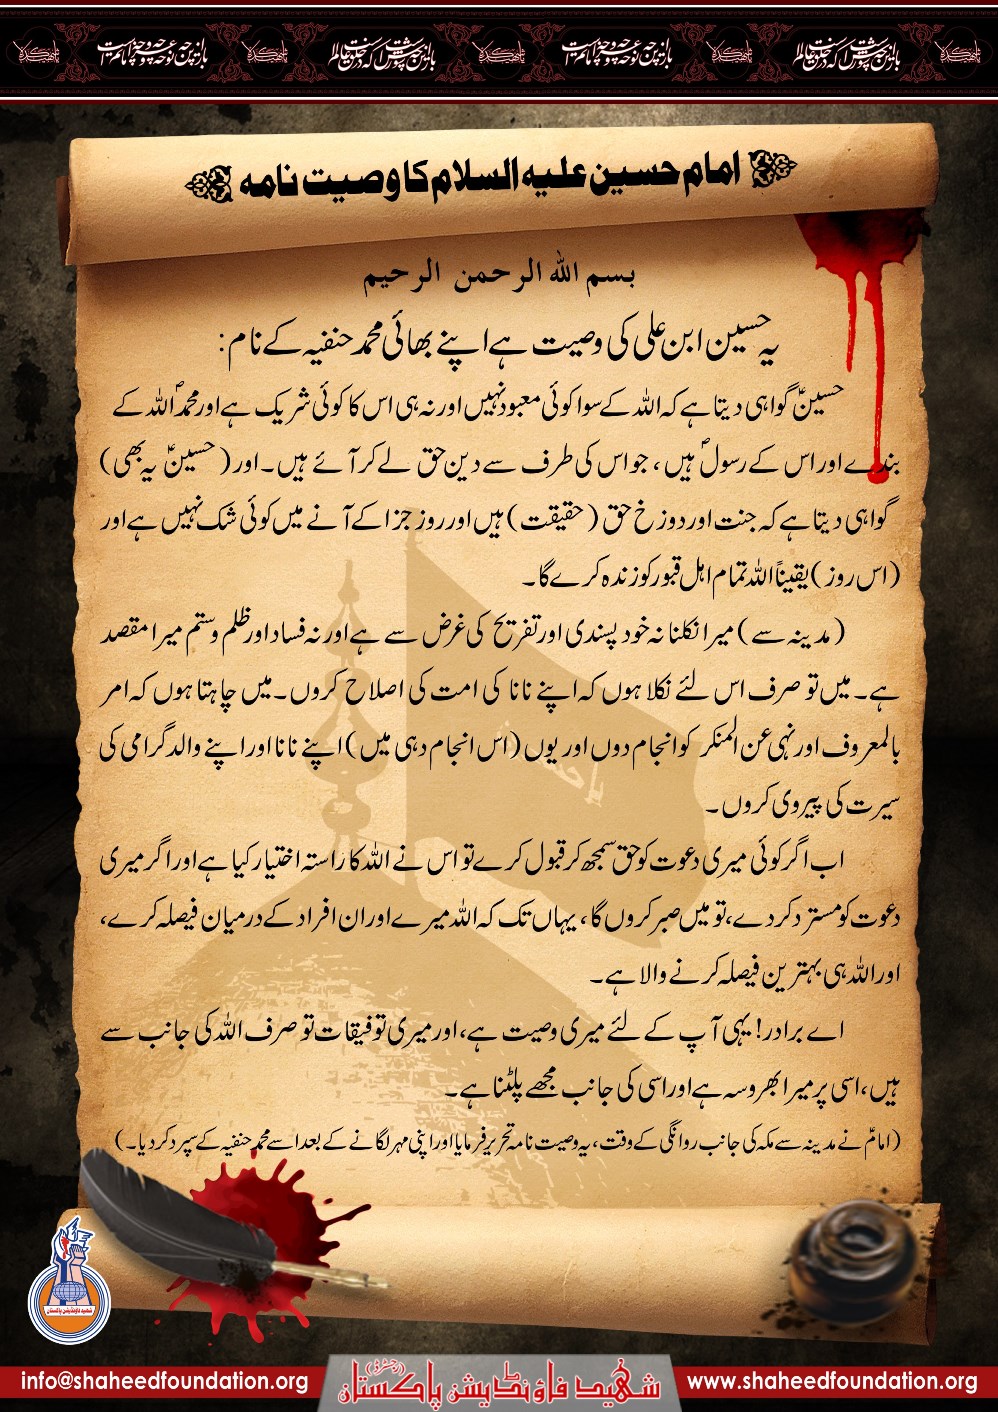 باز این چه نوحه و چه عزا و چه ماتم است
امام حسین علیہ السلام کا وصیت نامہ
بسم اللہ الرحمن الرحیم
یہ حسین ابن علی کی وصیت ہے اپنے بھائی محمد حنفیہ کے نام:
حسینؑ گواہی دیتا ہے کہ اللہ کے سوا کوئی معبود نہیں اور نہ ہی اس کا کوئی شریک ہے اور محمدؐ اللہ کے
بندے اور اس کے رسولؐ ہیں، جو اس کی طرف سے دین حق لے کر آئے ہیں۔ اور (حسینؑ یہ بھی)
گواہی دیتا ہے کہ جنت اور دوزخ حق (حقیقت) ہیں اور روز جزا کے آنے میں کوئی شک نہیں ہے اور
(اس روز) یقیناً اللہ تمام اہل قبور کو زندہ کرے گا۔
(مدینہ سے) میرا نکلنا نہ خود پسندی اور تفریح کی غرض سے ہے اور نہ فساد اور ظلم و ستم میرا مقصد
ہے۔ میں تو صرف اس لئے نکلا ہوں کہ اپنے نانا کی امت کی اصلاح کروں۔ میں چاہتا ہوں کہ امر
بالمعروف اور نہی عن المنکر کو انجام دوں اور یوں (اس انجام دہی میں) اپنے نانا اور اپنے والد گرامی کی
سیرت کی پیروی کروں۔
اب اگر کوئی میری دعوت کو حق سمجھ کر قبول کرے تو اس نے اللہ کا راستہ اختیار کیا ہے اور اگر میری
دعوت کو مسترد کر دے، تو میں صبر کروں گا، یہاں تک کہ اللہ میرے اور ان افراد کے درمیان فیصلہ کرے،
اور اللہ ہی بہترین فیصلہ کرنے والا ہے۔
اے برادر! یہی آپ کے لئے میری وصیت ہے، اور میری توفیقات تو صرف اللہ کی جانب سے
ہیں، اسی پر میرا بھروسہ ہے اور اسی کی جانب مجھے پلٹنا ہے۔
(امامؑ نے مدینہ سے مکہ کی جانب روانگی کے وقت، یہ وصیت نامہ تحریر فرمایا اور اپنی مہر لگانے کے بعد اسے محمد حنفیہ کے سپرد کر دیا۔)
شہید فاؤنڈیشن پاکستان
info@shaheedfoundation.org
شہید فاؤنڈیشن پاکستان (رجسٹرڈ)
www.shaheedfoundation.org